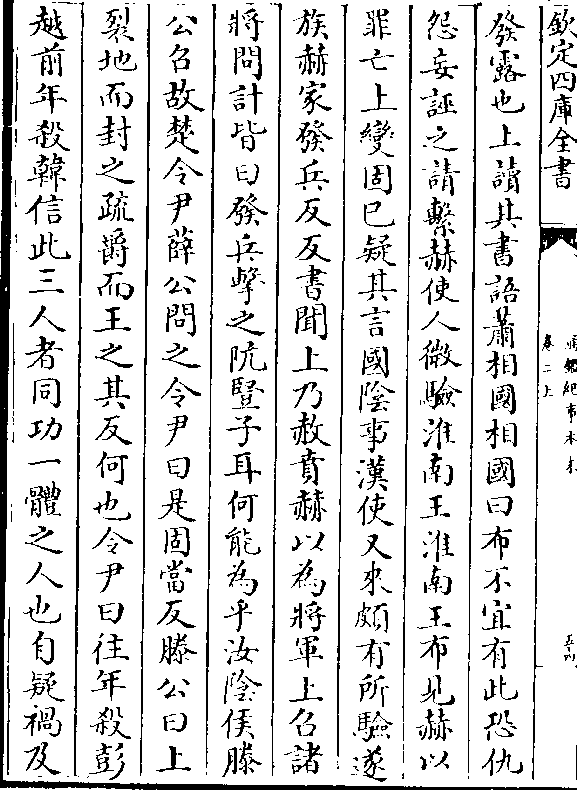 欽定四庫全書
通鑑紀事本末
卷二上
五十四
發露也上讀其書語蕭相國相國曰布不宜有此恐仇
怨妄誣之請繫赫使人微驗淮南王淮南王布見赫以
罪亡上變固已疑其言國陰事漢使又來頗有所驗遂
族赫家發兵反反書聞上乃赦賁赫以為將軍上召諸
將問計皆曰發兵擊之阬豎子耳何能為乎汝陰侯滕
公召故楚令尹薛公問之令尹曰是固當反滕公曰上
裂地而封之疏爵而王之其反何也令尹曰往年殺彭
越前年殺韓信此三人者同功一體之人也自疑禍及